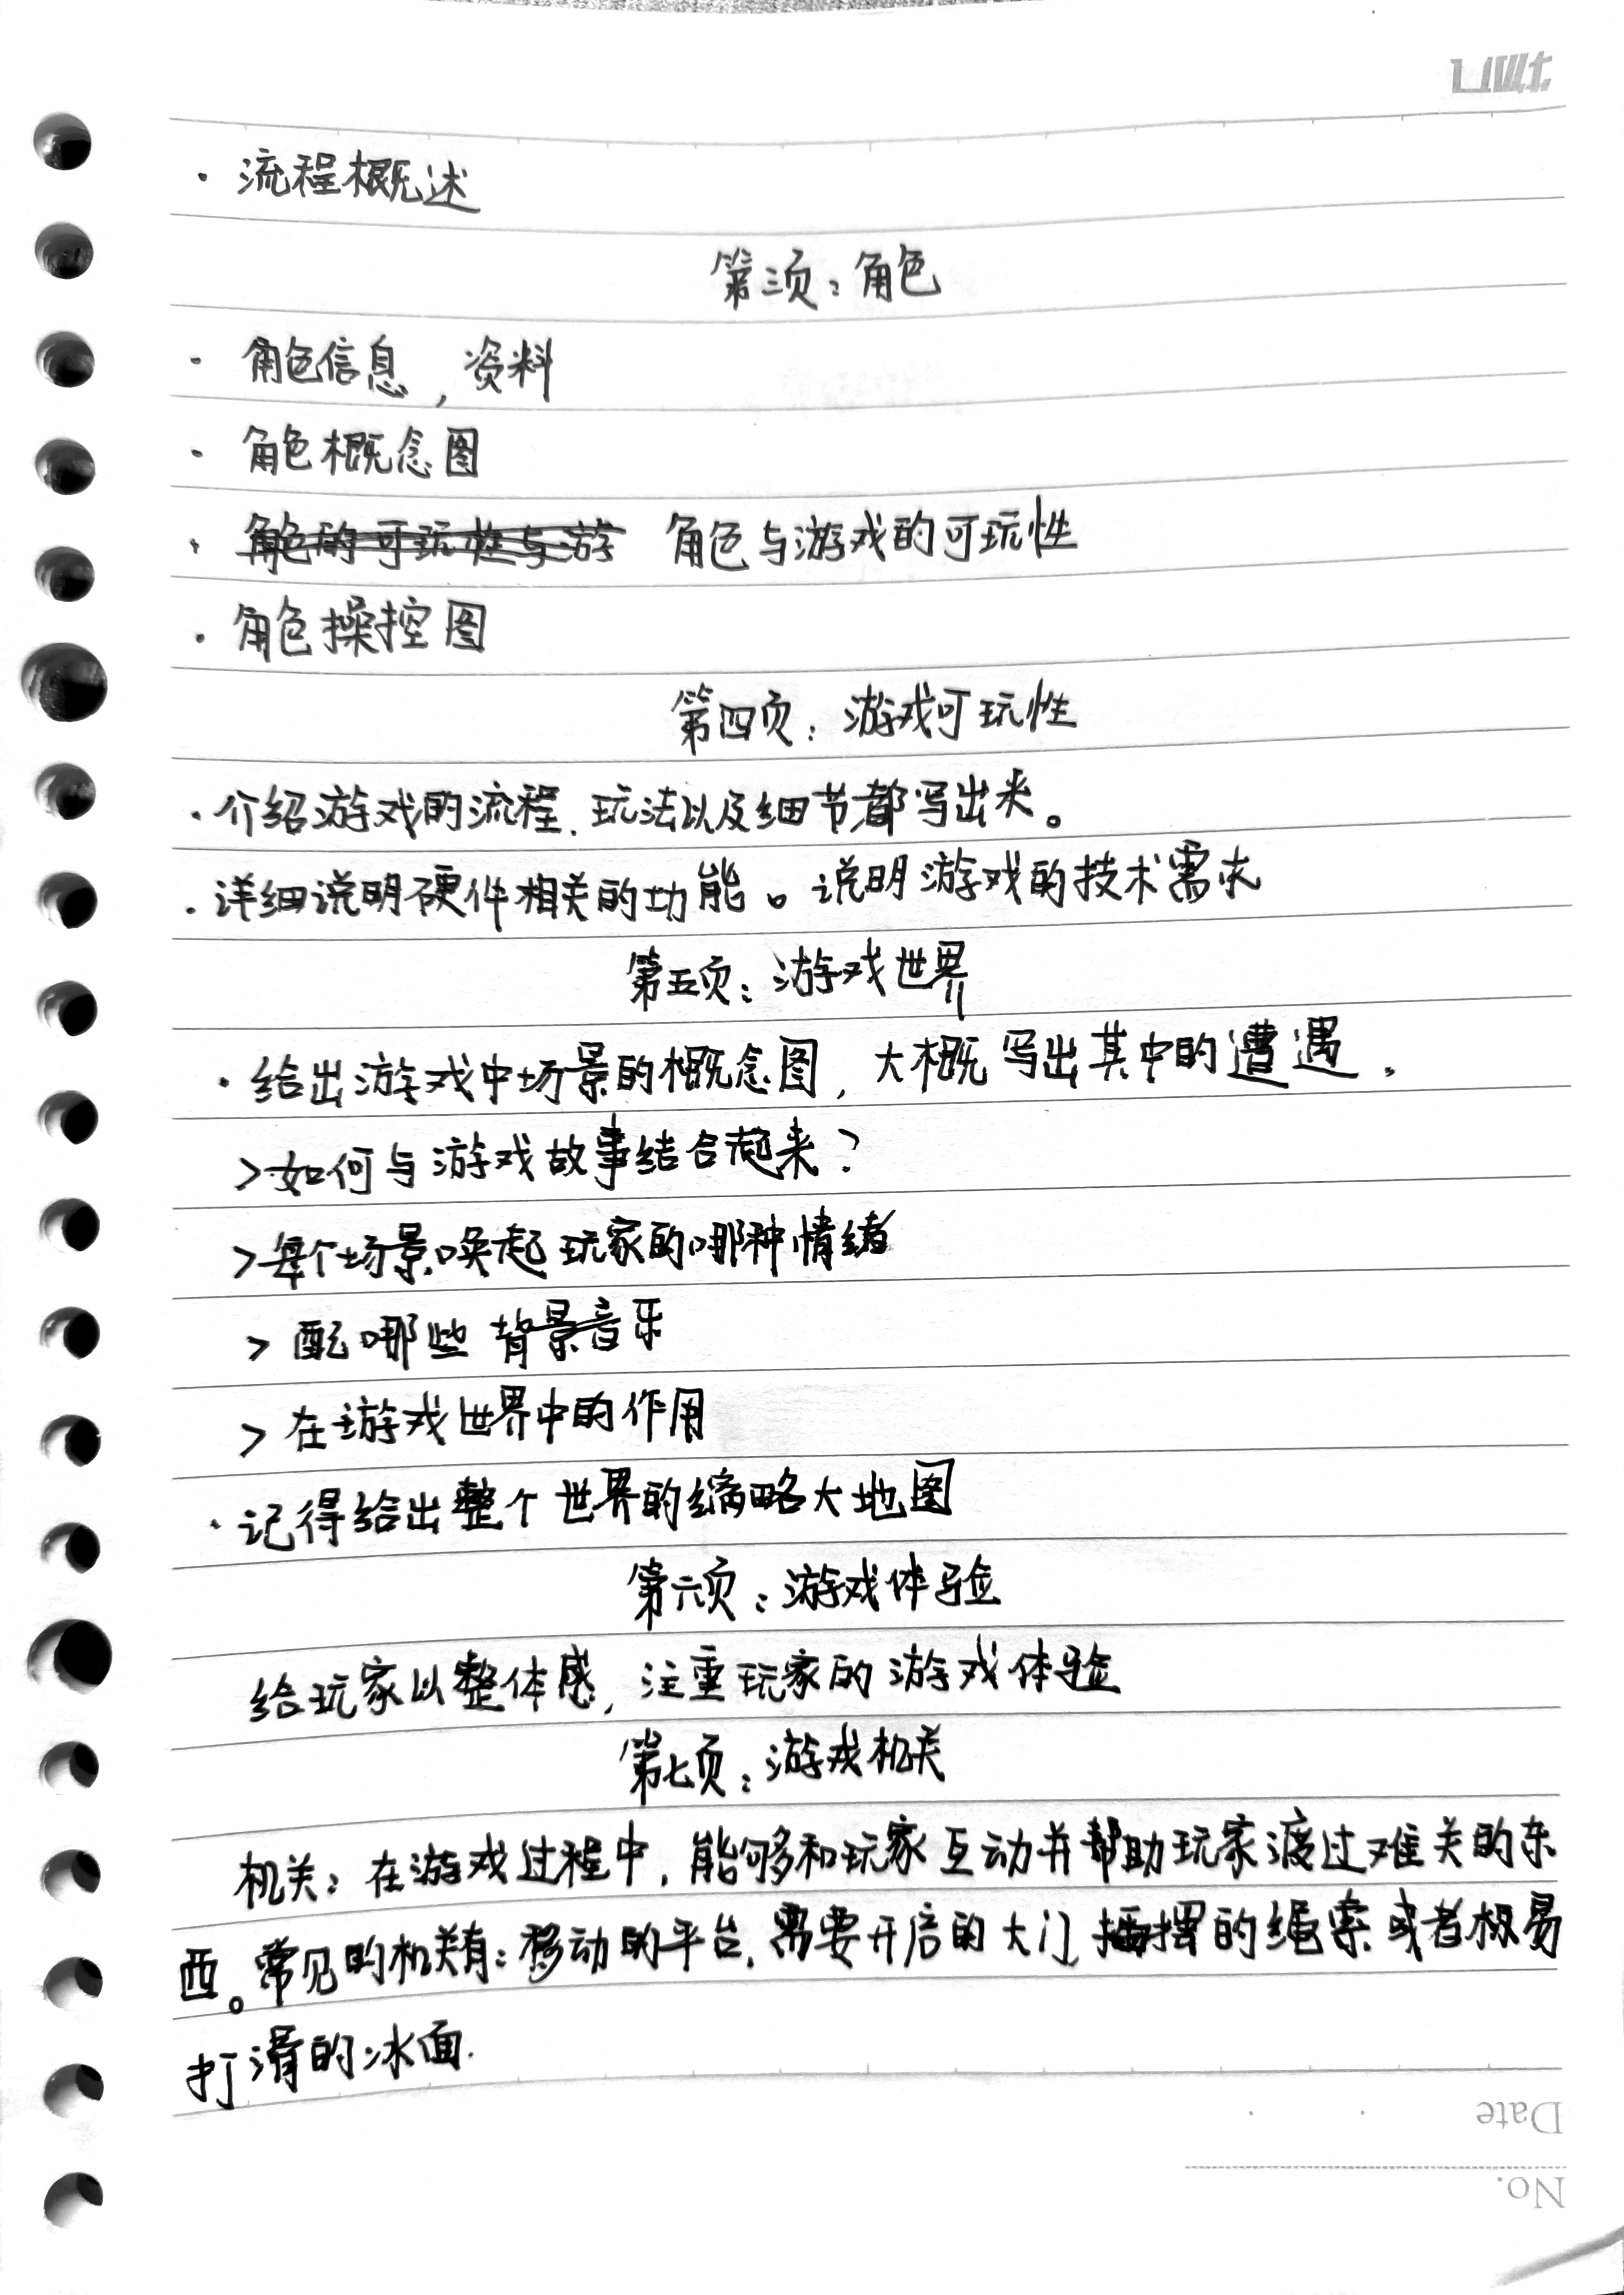 · 流程概述
第三页：角色
· 角色信息，资料
· 角色概念图
· 角色的可玩性与游 角色与游戏的可玩性
· 角色操控图
第四页：游戏可玩性
· 介绍游戏的流程、玩法以及细节都写出来。
· 详细说明硬件相关的功能。说明游戏的技术需求
第五页：游戏世界
· 给出游戏中场景的概念图，大概写出其中的遭遇。
>如何与游戏故事结合起来？
>每个场景唤起玩家的哪种情绪
> 配哪些背景音乐
> 在游戏世界中的作用
· 记得给出整个世界的缩略大地图
第六页：游戏体验
给玩家以整体感，注重玩家的游戏体验
第七页：游戏机关
机关：在游戏过程中，能够和玩家互动并帮助玩家渡过难关的东
西。常见的机关有：移动的平台，需要开启的大门，摇摆的绳索或者极易
打滑的冰面.
Date
No.